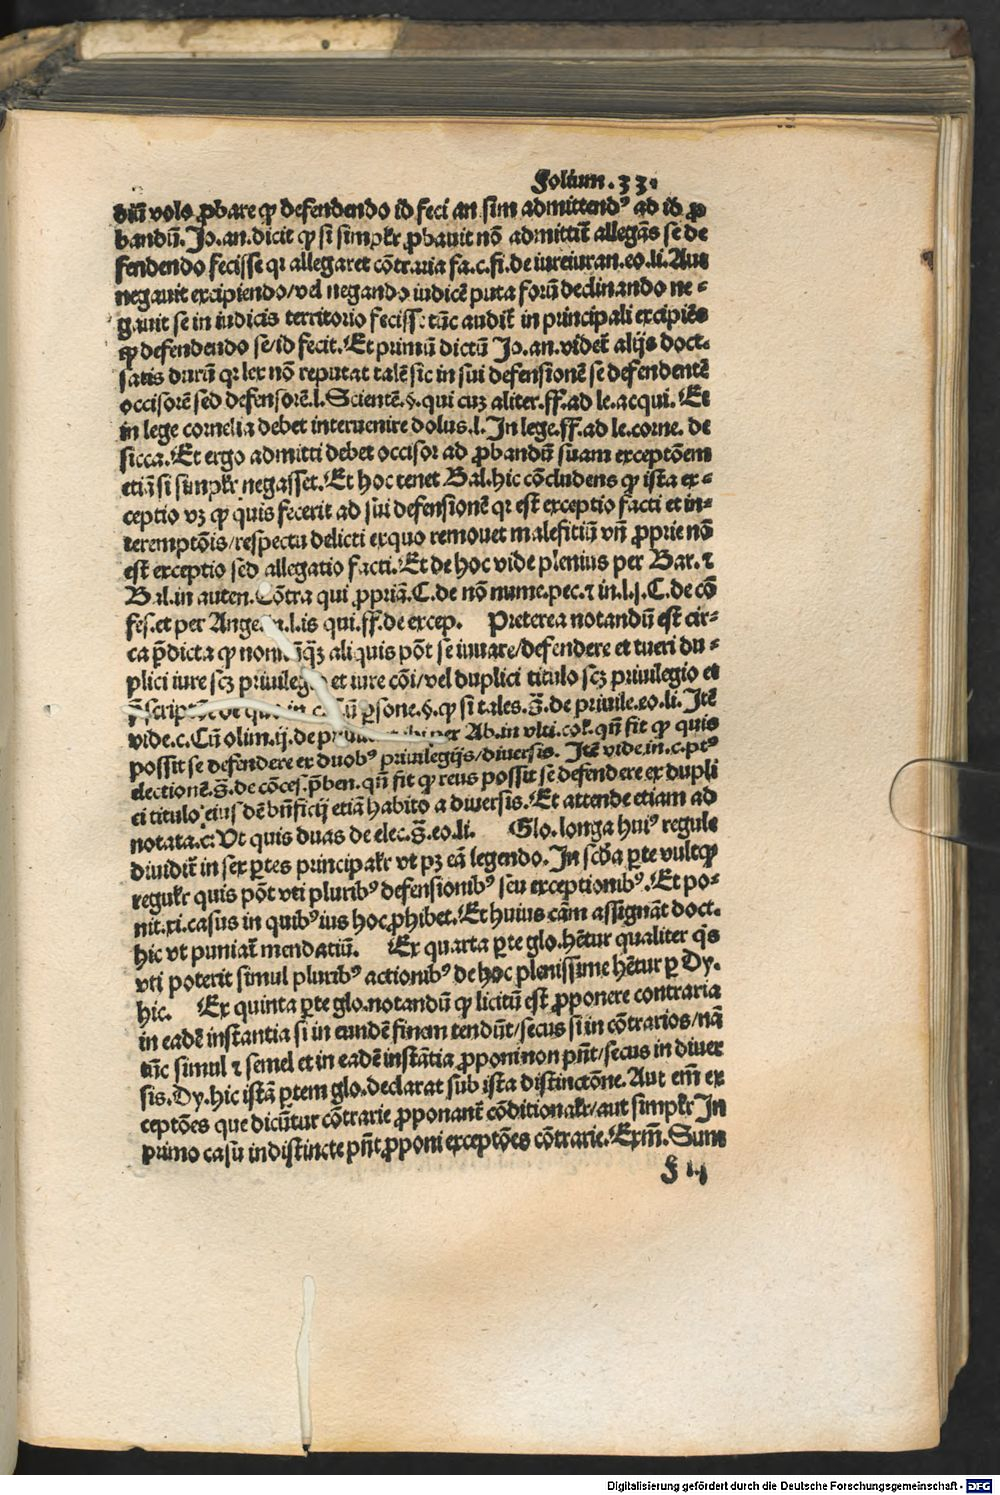 Folium .33.
diū volo ꝓbare ꝙ defendendo id feci an sim admittendꝰ ad id ꝓ
bandū. Jo. an. dicit ꝙ si simplr̄ ꝓbauit nō admittit̄ allegās se de
fendendo fecisse qꝛ allegaret cōtraria fa. c. fi. de iureiuran. eo. li. Aut
negauit excipiendo/vel negando iudicē puta forū declinando ne⸗
gauit se in iudicis territorio feciss: tūc audit̄ in principali excipiēs
ꝙ defendendo se/id fecit. Et primū dictū Jo. an. videt̄ alijs doct.
satis durū qꝛ lex nō reputat talē sic in sui defensionē se defendentē
occisorē sed defensorē. l. Scientē. §. qui cuʒ aliter. ff. ad le. acqui. Et
in lege cornelia debet interuenire dolus. l. In lege. ff. ad le. corne. de
sicca. Et ergo admitti debet occisor ad ꝓbandū suam exceptōem
etiā si simplr̄ negasset. Et hoc tenet Bal. hic cōcludens ꝙ ista ex⸗
ceptio vʒ ꝙ quis fecerit ad sui defensionē qꝛ est exceptio facti et in⸗
teremptōis/respectu delicti exquo remouet malefitiū vn̄ ꝓprie nō
est exceptio sed allegatio facti. Et de hoc vide plenius per Bar. ⁊
Bal. in auten. Cōtra qui ꝓpriā. C. de nō nume. pec. ⁊ in. l. j. C. de cō
fes. et per Ange. in. l. is qui. ff. de excep. Preterea notandū est cir⸗
ca p̄dicta ꝙ aliquis pōt se iuuare/defendere et tueri du⸗
plici iure scʒ priuilegio et iure cōi/vel duplici titulo scʒ priuilegio et
de ꝑsone. §. ꝙ si tales. s̄. de priuile. eo. li. Itē
vide. c. Cū olim. ij. de per Ab. in vlti. col. qn̄ fit ꝙ quis
possit se defendere ex duobꝰ priuilegijs/diuersis. Itē vide. in. c. ptꝰ
electionē. s̄. de cōces. p̄ben. qn̄ fit ꝙ reus possit se defendere ex dupli
ci titulo eius dē bn̄ficij etiā habito a diuersis. Et attende etiam ad
notata. c. Vt quis duas de elec. s̄. eo. li. Glo. longa huiꝰ regule
diuidit̄ in sex ꝑtes principalr̄ vt pʒ eā legendo. In scḋa ꝑte vult ꝙ
regulr̄ quis pōt vti pluribꝰ defensionibꝰ seu exceptionibꝰ. Et po⸗
nit. xi. casus in quibꝰ ius hoc ꝓhibet. Et huius cām assignāt doct.
hic vt puniat̄ mendatiū. Ex quarta ꝑte glo. hētur qualiter q̇s
vti poterit simul pluribꝰ actionibꝰ de hoc plenissime hētur ꝑ Dy.
hic. Ex quinta ꝑte glo. notandū ꝙ licitū est ꝓponere contraria
in eadē instantia si in eundē finem tendūt/secus si in cōtrarios/nā
tūc simul ⁊ semel et in eadē instātia ꝓponi non pn̄t/secus in diuer
sis. Dy. hic istā ꝑtem glo. declarat sub ista distinctōne. Aut em̄ ex
ceptōes que dicūtur cōtrarie ꝓponant̄ cōditionalr̄/aut simplr̄ In
primo casu indistincte pn̄t ꝓponi exceptōes cōtrarie. Exm̄. Sum
f ij
Digitalisierung gefördert durch die Deutsche Forschungsgemeinschaft - DFG